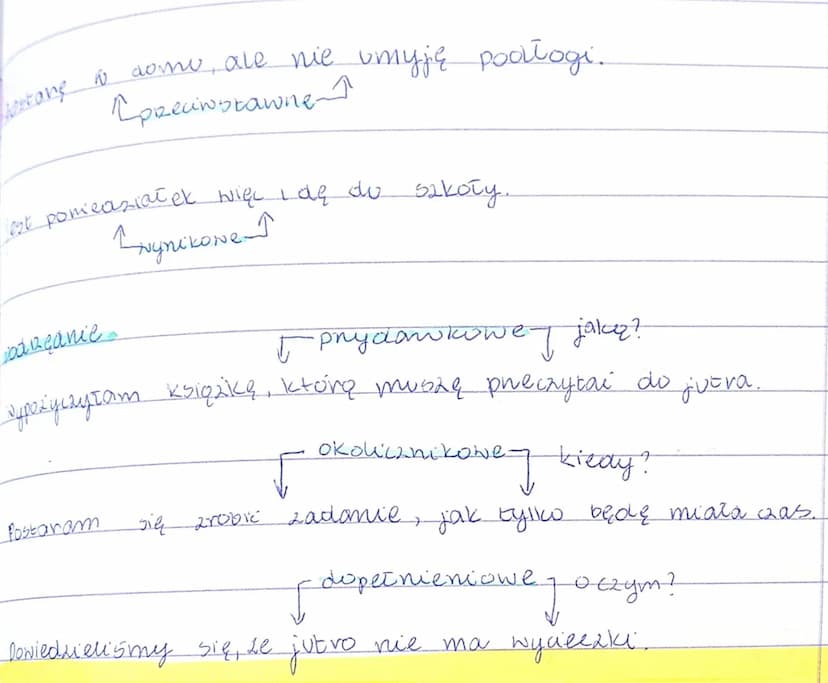 zostanę w domu, ale nie umyję podłogi.
przeciwstawne
jest poniedziałek więc idę do szkoły.
wynikowe
podrzędnie
przydawkowe jaką?
wypożyczyłam książkę, którą muszę przeczytać do jutra.
okolicznikowe kiedy?
Postaram się zrobić zadanie, jak tylko będę miała czas.
dopełnieniowe o czym?
Dowiedzieliśmy się, że jutro nie ma wycieczki.